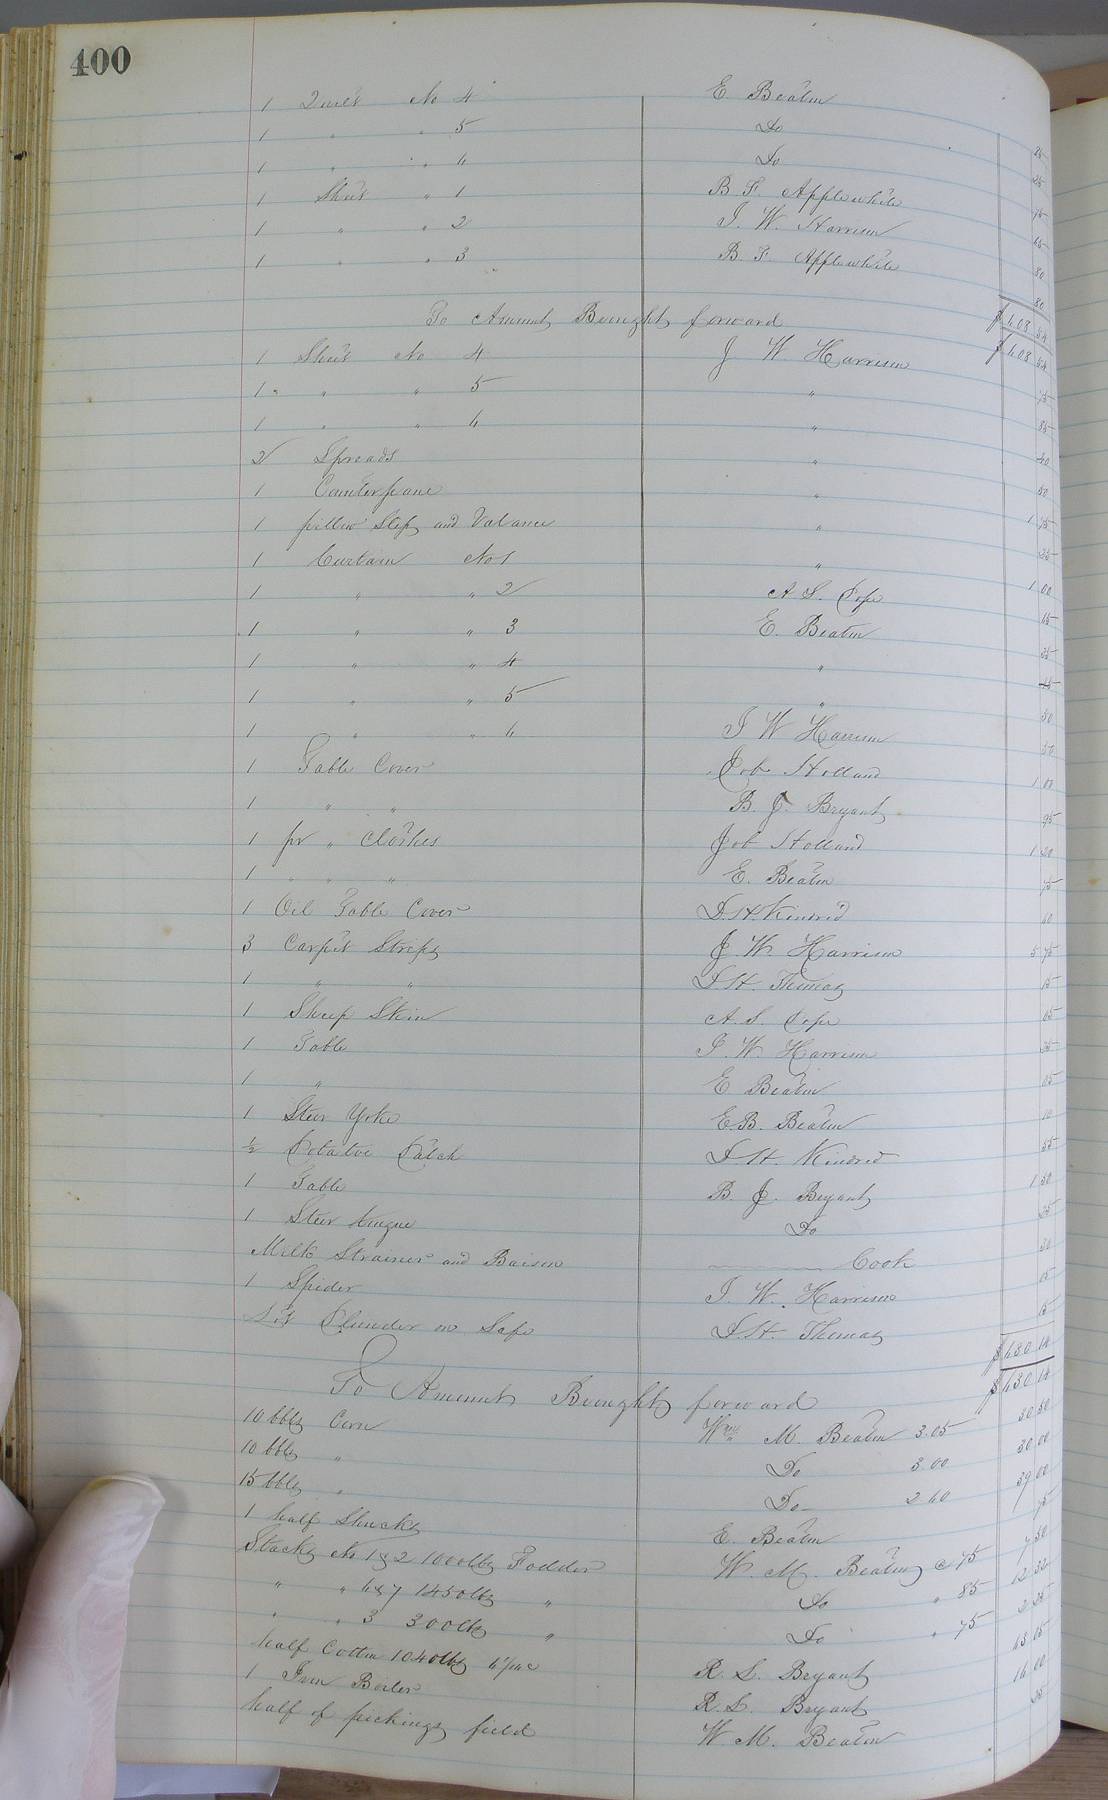 400
1 Quilt No 4 E Beaton
1 " " 5 Do 25
1 " " 6 Do 25
1 Sheet " 1 B. F. Applewhite 75
1 " " 2 J. W. Harrison 65
1 " " 3 B. F. Applewhite 80
80
To Amount Brought forward $608 54
1 Sheet No 4 J W Harrison $608 54
1 " " 5 " 75
1 " " 6 " 85
2 Spreads " 40
1 Counterpane " 50
1 pillow Slip and Valance " 1 75
1 Curtain No 1 " 25
1 " " 2 A. S. Pope 1 00
1 " " 3 E. Beaton 15
1 " " 4 " 25
1 " " 5 "
1 " " 6 J W Harrison 50
1 Table Cover Job Holland 50
1 " " B. J. Bryant 1 00
1 pr " Clothes Job Holland 95
1 " " " E. Beaton 1 20
1 Oil Table Cover D. H. Kindred 75
3 Carpet Strips J. W. Harrison 5 75
1 " " D. H. Thomas 15
1 Sheep Skin A. S. Pope 05
1 Table J. W. Harrison 25
1 " E Beaton 05
1 Steer Yoke E. B. Beaton 10
½ Potatoe Patch D H. Kindred 55
1 Table B. J. Bryant 1 50
1 Steer tongue Do 25
Milk Strainer and Baisen Cook 30
1 Spider J. W. Harrison 05
Lot Plunder on Safe D. H. Thomas 15
$630 14
To Amount Brought forward $630 14
10 bbls Corn Wm M. Beaton 3.05 30 50
10 bbls " Do 3 00 30 00
15 bbls " Do 2 60 39 00
1 half Shucks E. Beaton 75
Stacks No 1 & 2 1000 lbs Fodder W. M. Beaton @ 75 7 50
" " 6 & 7 1450 lbs " Do " 85 12 32
" " 3 300 lbs " Do " 75 2 25
half Cotton 1040 lbs R. S. Bryant 63 05
1 Iron Boiler R. S. Bryant 16 00
half of pickings field W M. Beaton 25